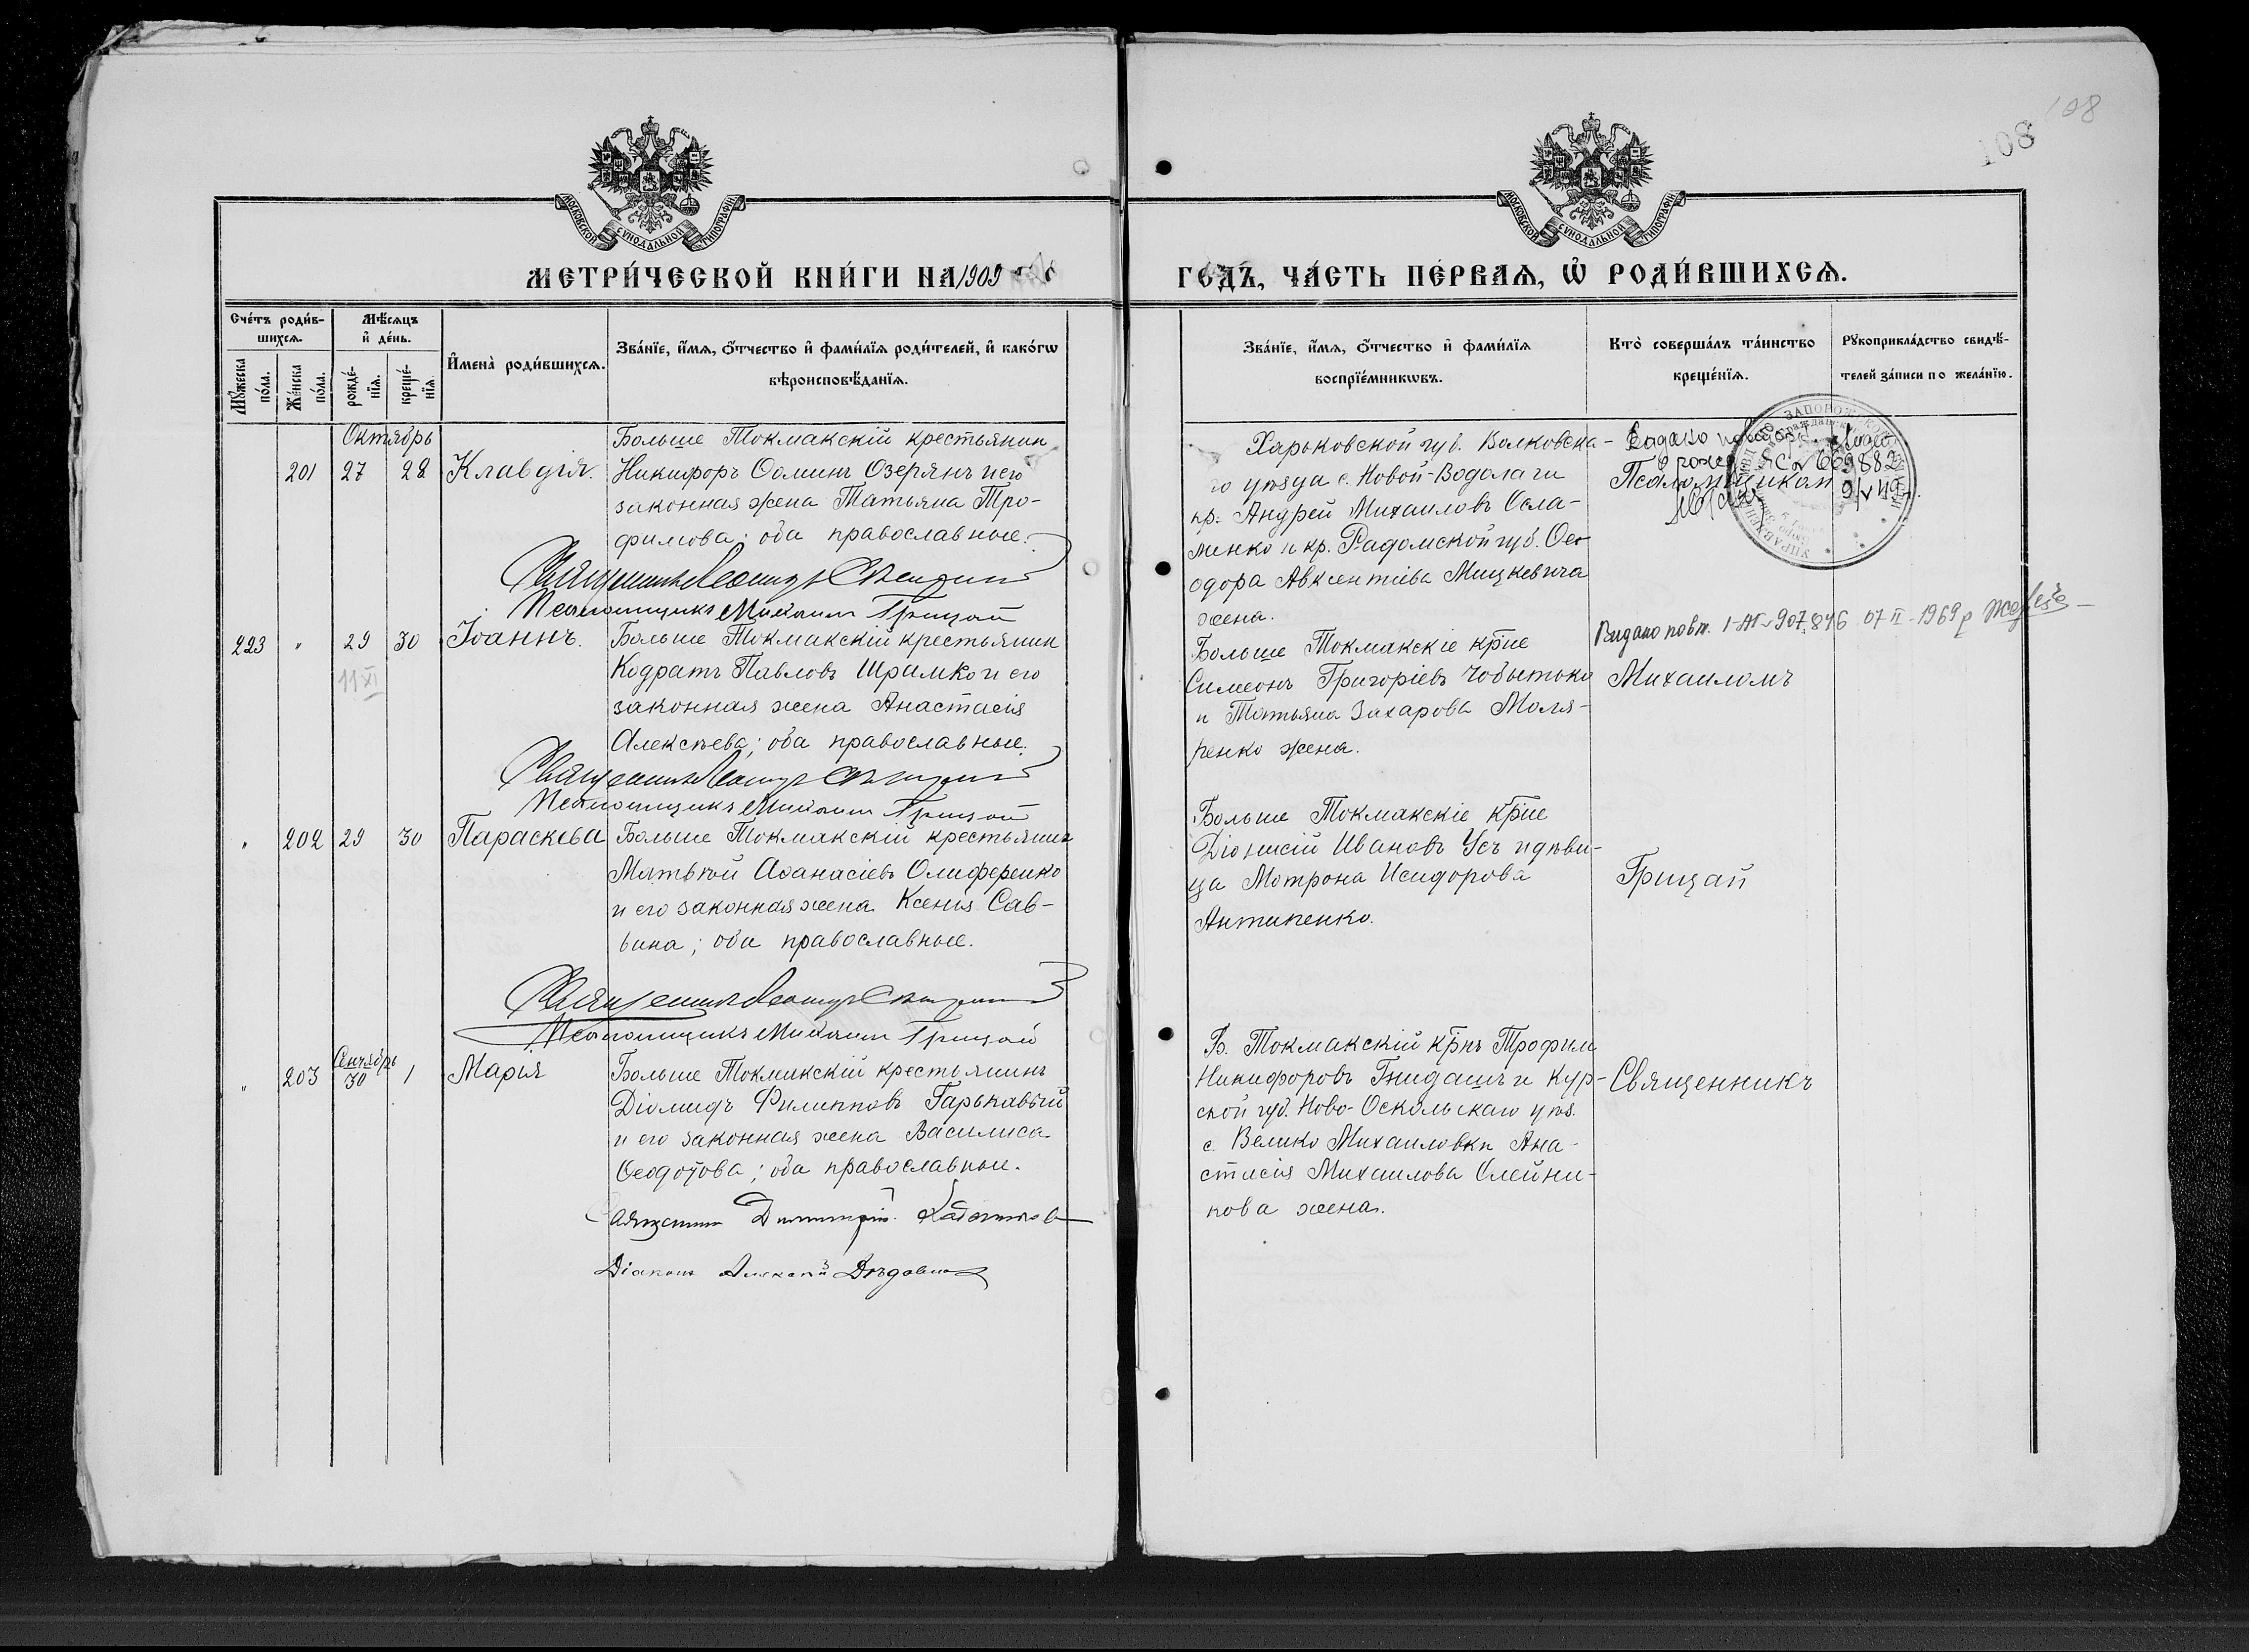 108
108
МОСКОВСКОЙ СУНОДАЛЬНОЙ ТИПОГРАФІИ
МОСКОВСКОЙ СУНОДАЛЬНОЙ ТИПОГРАФІИ
МЕТРИ́ЧЕСКОЙ КНИ́ГИ НА 1909
ГО́ДЪ, ЧА́СТЬ ПЕ́РВАѦ, Ѡ҆ РОДИ́ВШИХСѦ.
Сче́тъ роди́в-
шихсѧ.
Мꙋ́жеска по́ла.
Же́нска по́ла.
Мѣ́сѧцъ
и҆ де́нь.
рожде́-
нїѧ.
креще́-
нїѧ.
И҆мена̀ роди́вшихсѧ.
Зва́нїе, и҆́мѧ, ѻ҆́тчество и҆ фами́лїѧ роди́телей, и҆ како́гѡ
вѣроисповѣ́данїѧ.
Зва́нїе, и҆́мѧ, ѻ҆́тчество и҆ фами́лїѧ
воспрїе́мникѡвъ.
Кто̀ соверша́лъ та́инство
креще́нїѧ.
Рꙋкоприкла́дство свидѣ́-
телей за́писи по жела́нїю.
Октябрь
201 27 28 Клавдія.
Больше Токмакскій крестьянин
Никифоръ Ѳоминъ Озерянъ и его
законная жена Татьяна Тро-
фимова; оба православные.
Священникъ Леонидъ
Псаломщикъ Михаил Грицай
Харьковской губ. Волковска-
го уѣзда с. Новой-Водолаги
кр. Андрей Михаиловъ Осла-
менко и кр. Радомской губ. Ѳео
одора Авксентіева Мицкевича
жена.
Псаломщиком
669882
223 " 29 30 Іоаннъ.
11 XI
Больше Токмакскій крестьянин
Кодратъ Павловъ Шрамко и его
законная жена Анастасія
Алексѣева; оба православные.
Священникъ Леонидъ
Псаломщикъ Михаил Грицай
Больше Токмакскіе кр̅не
Симеонъ Григоріевъ Чобытько
и Татьяна Захарова Моля-
ренко жена.
Видано повт. 907846 07 II-1969 р
Михаиломъ
" 202 29 30 Параскева
Больше Токмакскій крестьянинъ
Матѳѣй Аѳанасіевъ Олифиренко
и его законная жена Ксенія Сав-
вина; оба православные.
Священникъ Леонидъ
Псаломщикъ Михаил Грицай
Больше Токмакскіе кр̅не
Діонисій Ивановъ Усъ и дѣви-
ца Мотрона Исидорова
Антипенко.
Грицай
Сентябрь
" 203 30 1 Марія
Больше Токмакскій крестьянинъ
Діомидъ Филипповъ Гарькавый
и его законная жена Василиса
Ѳеодотова; оба православные.
Священник Димитрій
Діаконъ Алексѣй
Б. Токмакскій кр̅нъ Трофим
Никифоровъ Гнидашъ и Кур-
ской губ. Ново-Оскольскаго уѣз.
с. Велико Михаиловки Ана-
стасія Михаилова Олейни-
кова жена.
Священникъ